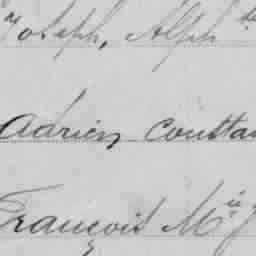 Joseph, Alph
Adrien Constan
François M.ie J